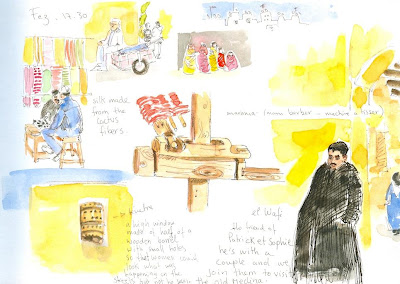 Fez. 17.30
silk made
from the
cactus
fibers.
a high window
made of half of a
wooden barrel
with small holes
so that women could
look what was
happening in the
street but not be seen
el Wafi
the head of
Patrick et Sophie
he's with a
couple and we
join them to visit
the old Medina.